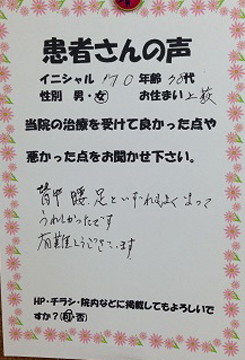 患者さんの声
イニシャル 年齢 代
性別 男・女 お住まい 上荻
当院の治療を受けて良かった点や
悪かった点をお聞かせ下さい。
背中 腰 足といずれもよくなって
うれしかったです
有難うございます
HP・チラシ・院内などに掲載してもよろしいで
すか?(可・否)